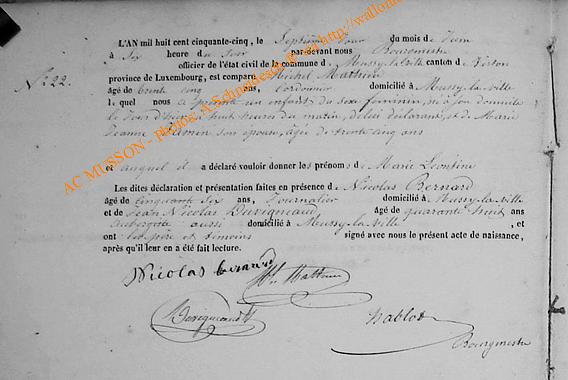 L'AN mil huit cent cinquante-cinq, le Septième jour du mois de Juin
à Six heure du Soir par-devant nous Bourgmestre
officier de l'état civil de la commune de Mussy-la-Ville canton de Virton
N° 22.
province de Luxembourg, est comparu Michel Mathieu
âgé de trente cinq ans, Cordonnier domicilié à Mussy-la-Ville
lequel nous a présenté un enfant du sexe féminin, né à son domicile
le jour d'hier à huit heures du matin, de lui déclarant, et de Marie
Jeanne son épouse, âgée de trente cinq ans
et auquel il a déclaré vouloir donner les prénoms de Marie Léontine
Les dites déclaration et présentation faites en présence de Nicolas Bernard
âgé de Cinquante Six ans, Journalier domicilié à Mussy-la-Ville
et de Jean Nicolas Duvigneaud âgé de quarante huit ans
aubergiste aussi domicilié à Mussy-la-Ville, et
ont les père et témoins signé avec nous le présent acte de naissance,
après qu'il leur en a été fait lecture.
Nicolas bernard
Duvigneaud
Bourgmestre
AC MUSSON - Photos: A.Schmickrath
http://wallonia